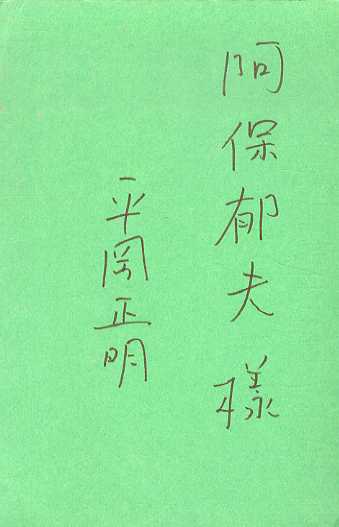 阿保郁夫様
平岡正明